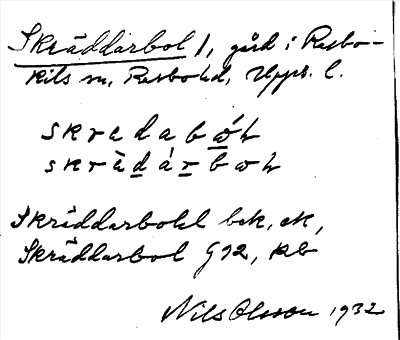 Skräddarbol 1, gård i Rasbo-
kils sn, Rasbo hd, Upps. l.
skredabωḷ
skrädárbωḷ
Skräddarbohl bck, ek,
Skräddarbol G92, kb
Nils Olsson 1932